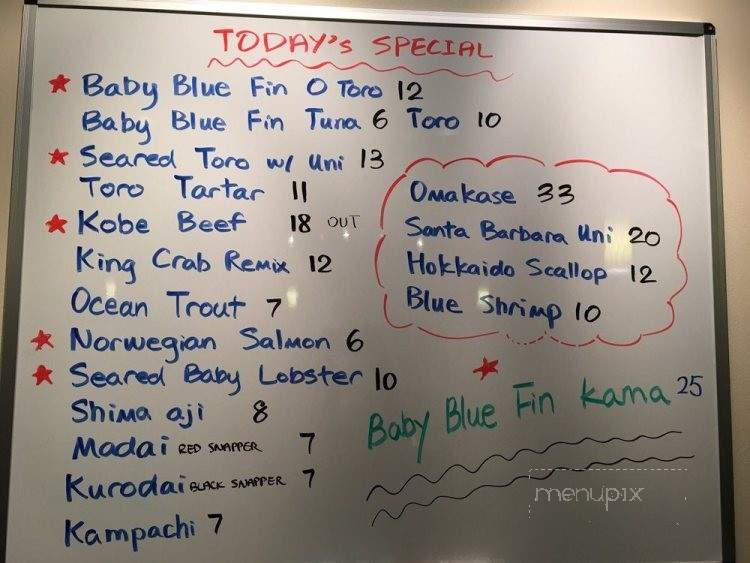 TODAY's SPECIAL
Baby Blue Fin O Toro 12
Baby Blue Fin Tuna 6 Toro 10
Seared Toro w/ Uni 13
Toro Tartar 11
Kobe Beef 18 OUT
King Crab Remix 12
Ocean Trout 7
Norwegian Salmon 6
Seared Baby Lobster 10
Shima aji 8
Madai RED SNAPPER 7
Kurodai BLACK SNAPPER 7
Kampachi 7
Omakase 33
Santa Barbara Uni 20
Hokkaido Scallop 12
Blue Shrimp 10
Baby Blue Fin Kama 25
menupix